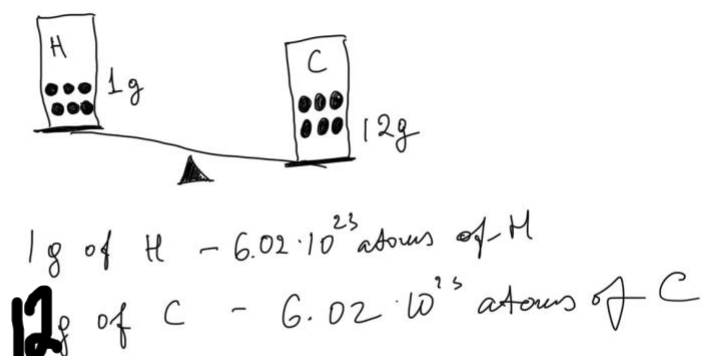 H
1g
C
12g
1g of H - 6.02·10²³ atoms of H
12g of C - 6.02·10²³ atoms of C